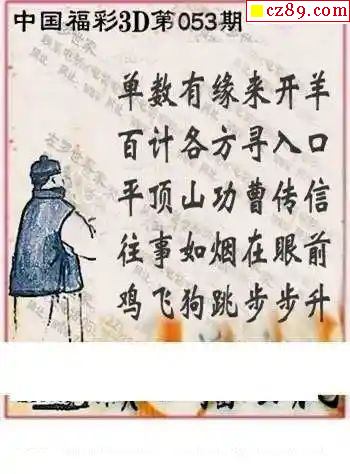 cz89.com
中国福彩3D第053期
单数有缘来开羊
百计各方寻入口
平顶山功曹传信
往事如烟在眼前
鸡飞狗跳步步升